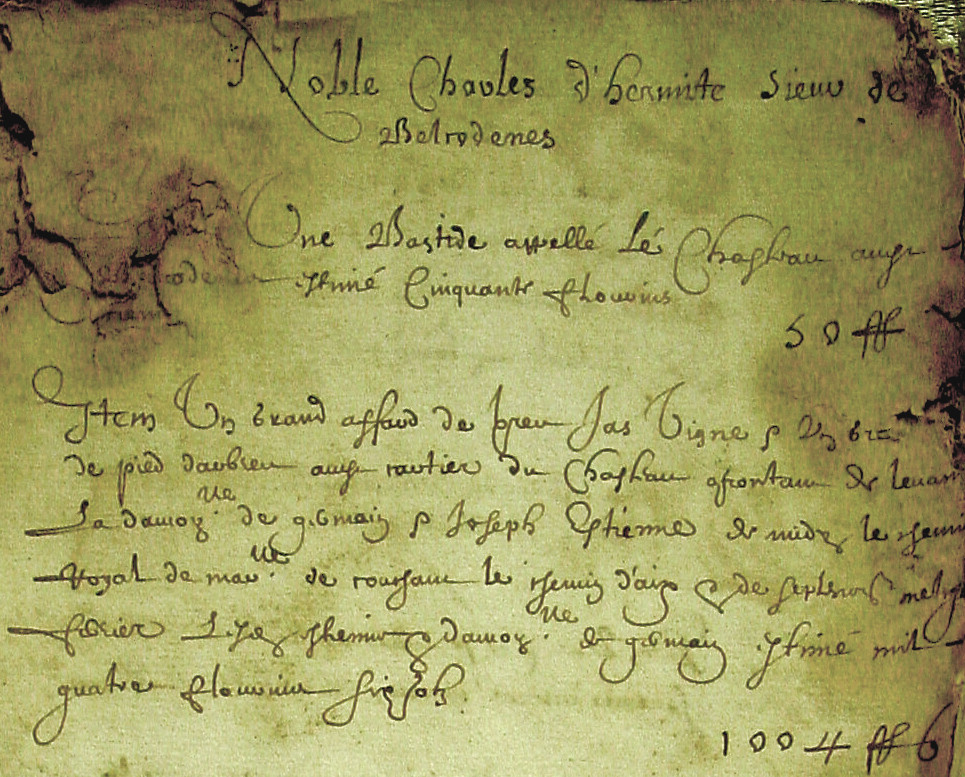 Noble Charles d'hermite sieur de
Belcodenes
Une Bastide appellé le Chasteau aux
estimé Cinquante flourins
50 ff
Item Un grand affard de preu Jas Vigne &
de pied daubreu aux cartier du Chasteau de levant
La damoy.lle de germain & Joseph Estienne de midy le chemin
Royal de mar.lle de couchant le chemin d'aix & de septentrion
ferier chemin & damoy.lle de germain estimé mil
quatre flourins six solz
1004 ff 6